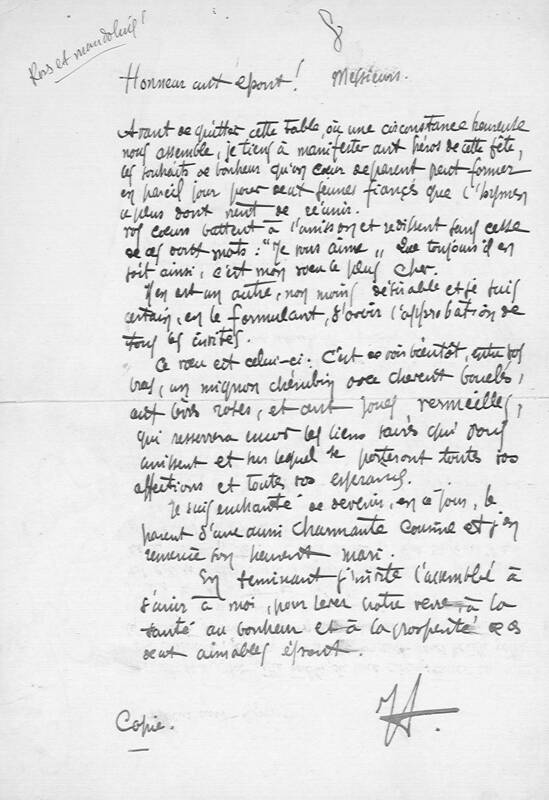 Honneur aux époux! Messieurs.
Avant de quitter cette table, où une circonstance heureuse
nous assemble, je tiens à manifester aux héros de cette fête,
les souhaits de bonheur qu'un cœur de parent peut former
en pareil jour pour deux jeunes fiancés que l'hymen
le plus doux vient de réunir.
Vos cœurs battent à l'unisson et redisent sans cesse
de ces doux mots : "Je vous aime" Que toujours il en
soit ainsi, c'est mon vœu le plus cher.
Il en est un autre, non moins désirable et je suis
certain, en le formulant, d'avoir l'approbation de
tous les invités.
Ce vœu est celui-ci : C'est de voir bientôt, entre vos
bras, un mignon chérubin avec cheveux bouclés,
aux bras roses, et aux joues vermeilles,
qui resserrera encor les liens sacrés qui vous
unissent et sur lequel se porteront toutes vos
affections et toutes vos espérances.
Je suis enchanté de devenir, en ce jour, le
parent d'une aussi charmante cousine et j'en
remercie son heureux mari.
En terminant j'invite l'assemblé à
s'unir à moi, pour lever notre verre, à la
santé au bonheur et à la prosperité de ces
deux aimables époux.
Copie.